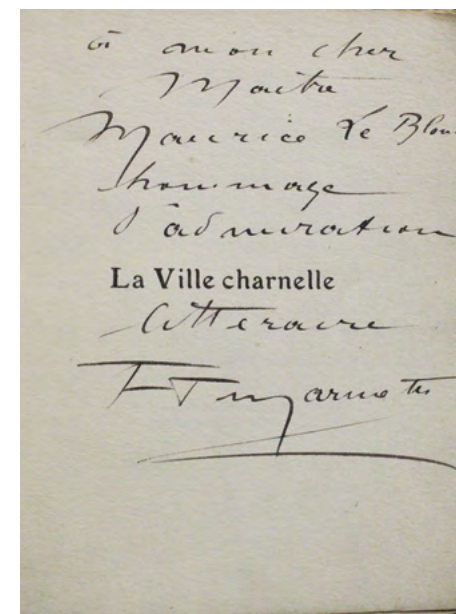 à mon cher
Maître
Maurice Le Blon
hommage
d'admiration
La Ville charnelle
littéraire
F T Marinetti